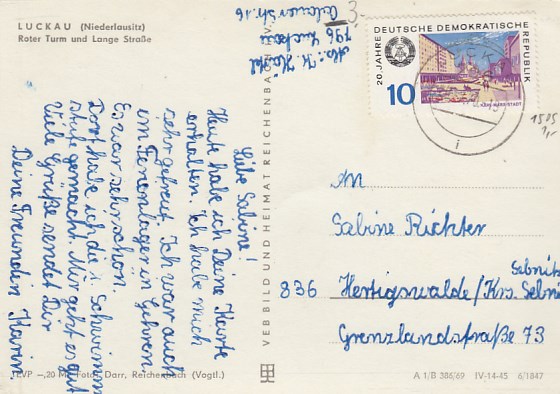 LUCKAU (Niederlausitz)
Roter Turm und Lange Straße
3,-
Abs.: K.
796 Luckau
Str. 16
Liebe Sabine!
Heute habe ich Deine Karte
erhalten. Ich habe mich
sehr gefreut. Ich war auch
im Ferienlager in Gehren.
Es war sehr schön.
Dort habe ich die 1. Schwimm
stufe gemacht. Mir geht es gut
Viele Grüße sendet Dir
Deine Freundin Karin.
VEB BILD UND HEIMAT REICHENBACH I. V.
20 JAHRE DEUTSCHE DEMOKRATISCHE REPUBLIK
10
KARL-MARX-STADT
i
1505
1,-
An
Sabine Richter
Sebnitz
836 Hertigswalde/Krs. Sebni
Grenzlandstraße 73
EVP –,20 M Foto: Darr, Reichenbach (Vogtl.)
A 1/B 386/69 IV-14-45 6/1847